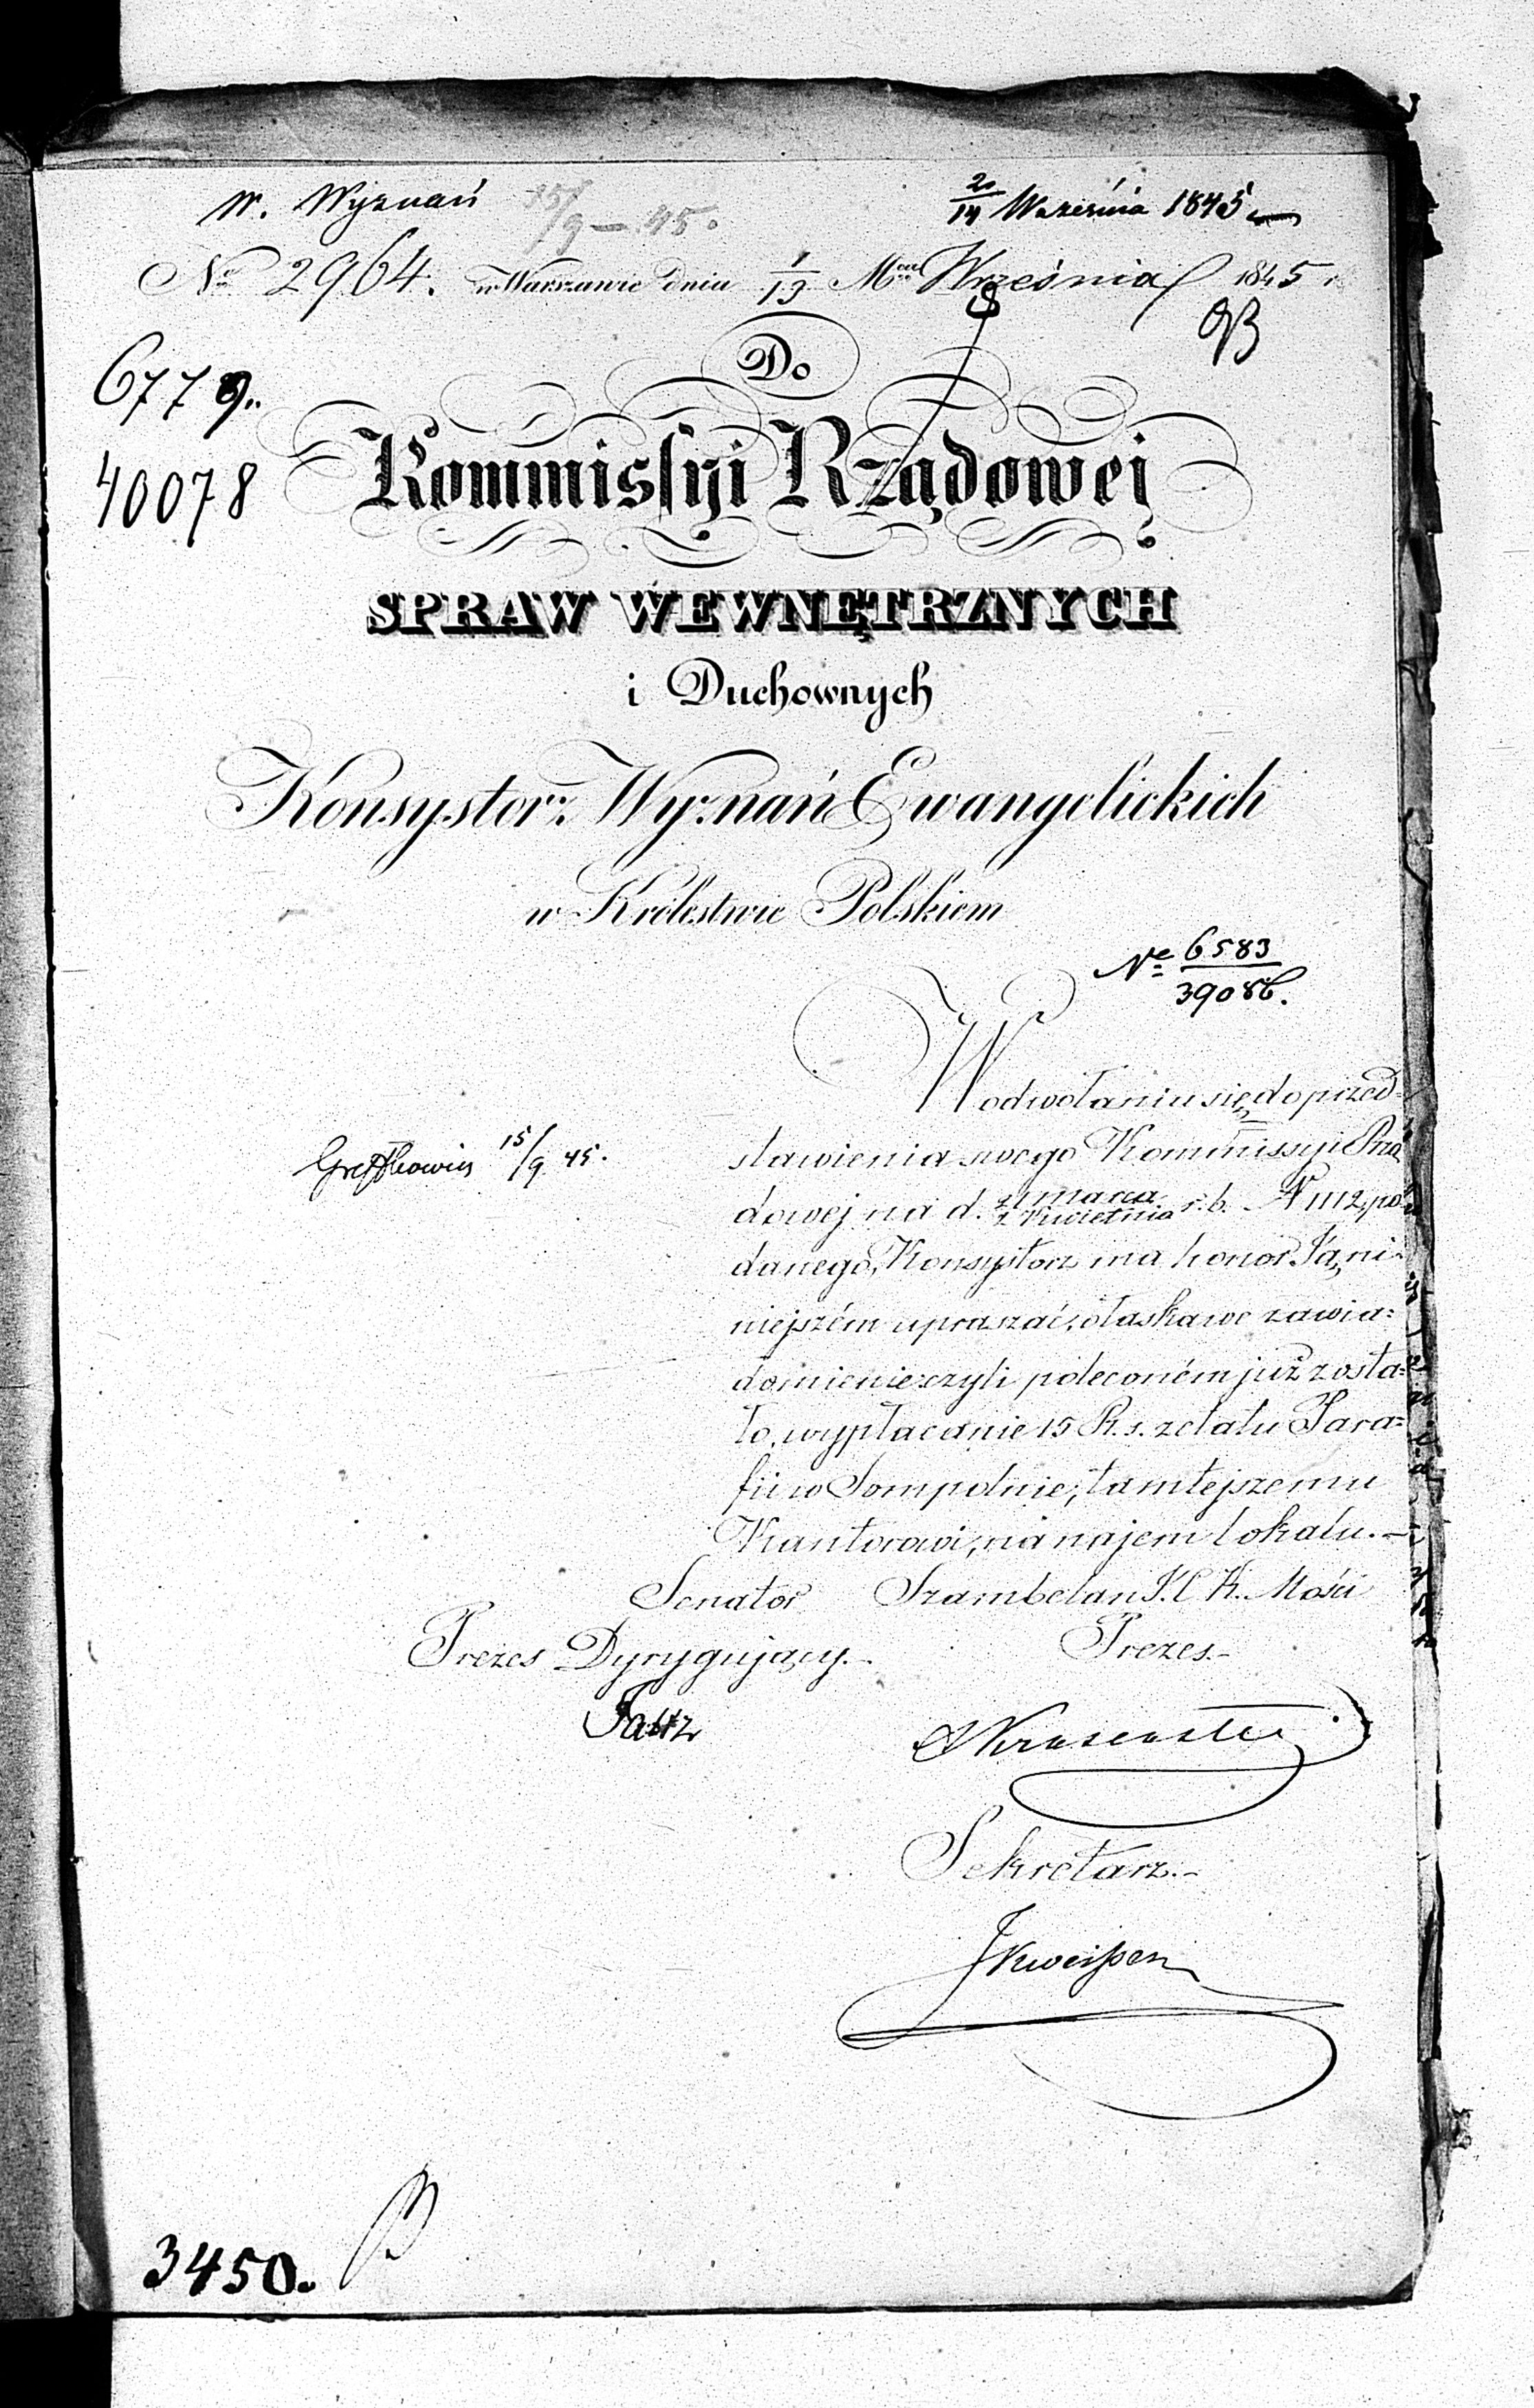 W. Wyznań 15/9 – 45. 2/14 Września 1845
No 2964. w Warszawie dnia 1/13 Mca Września 1845 r.
6779.
Do
40078
Kommissyi Rządowej
SPRAW WEWNĘTRZNYCH
i Duchownych
Konsystorz Wyznań Ewangelickich
w Królestwie Polskiem
No 6583/39086.
W odwołaniu się do przed=
stawienia swego Kommissyi Rzą
dowej na d. 21 marca/2 Kwietnia r.b. N 1112, po=
danego, Konsystorz ma honor Ją, ni=
niejszém upraszać, o łaskawe zawia=
domienie czyli poleconém już zosta=
ło, wypłacanie 15 R.s. z etatu Para=
fii w Sompolnie, tamtejszemu
Kantorowi, na najem lokalu.–
15/9 45.
Senator Szambelan J.C.K. Mości
Prezes Dyrygujący.– Prezes.–
Sekretarz.–
3450.